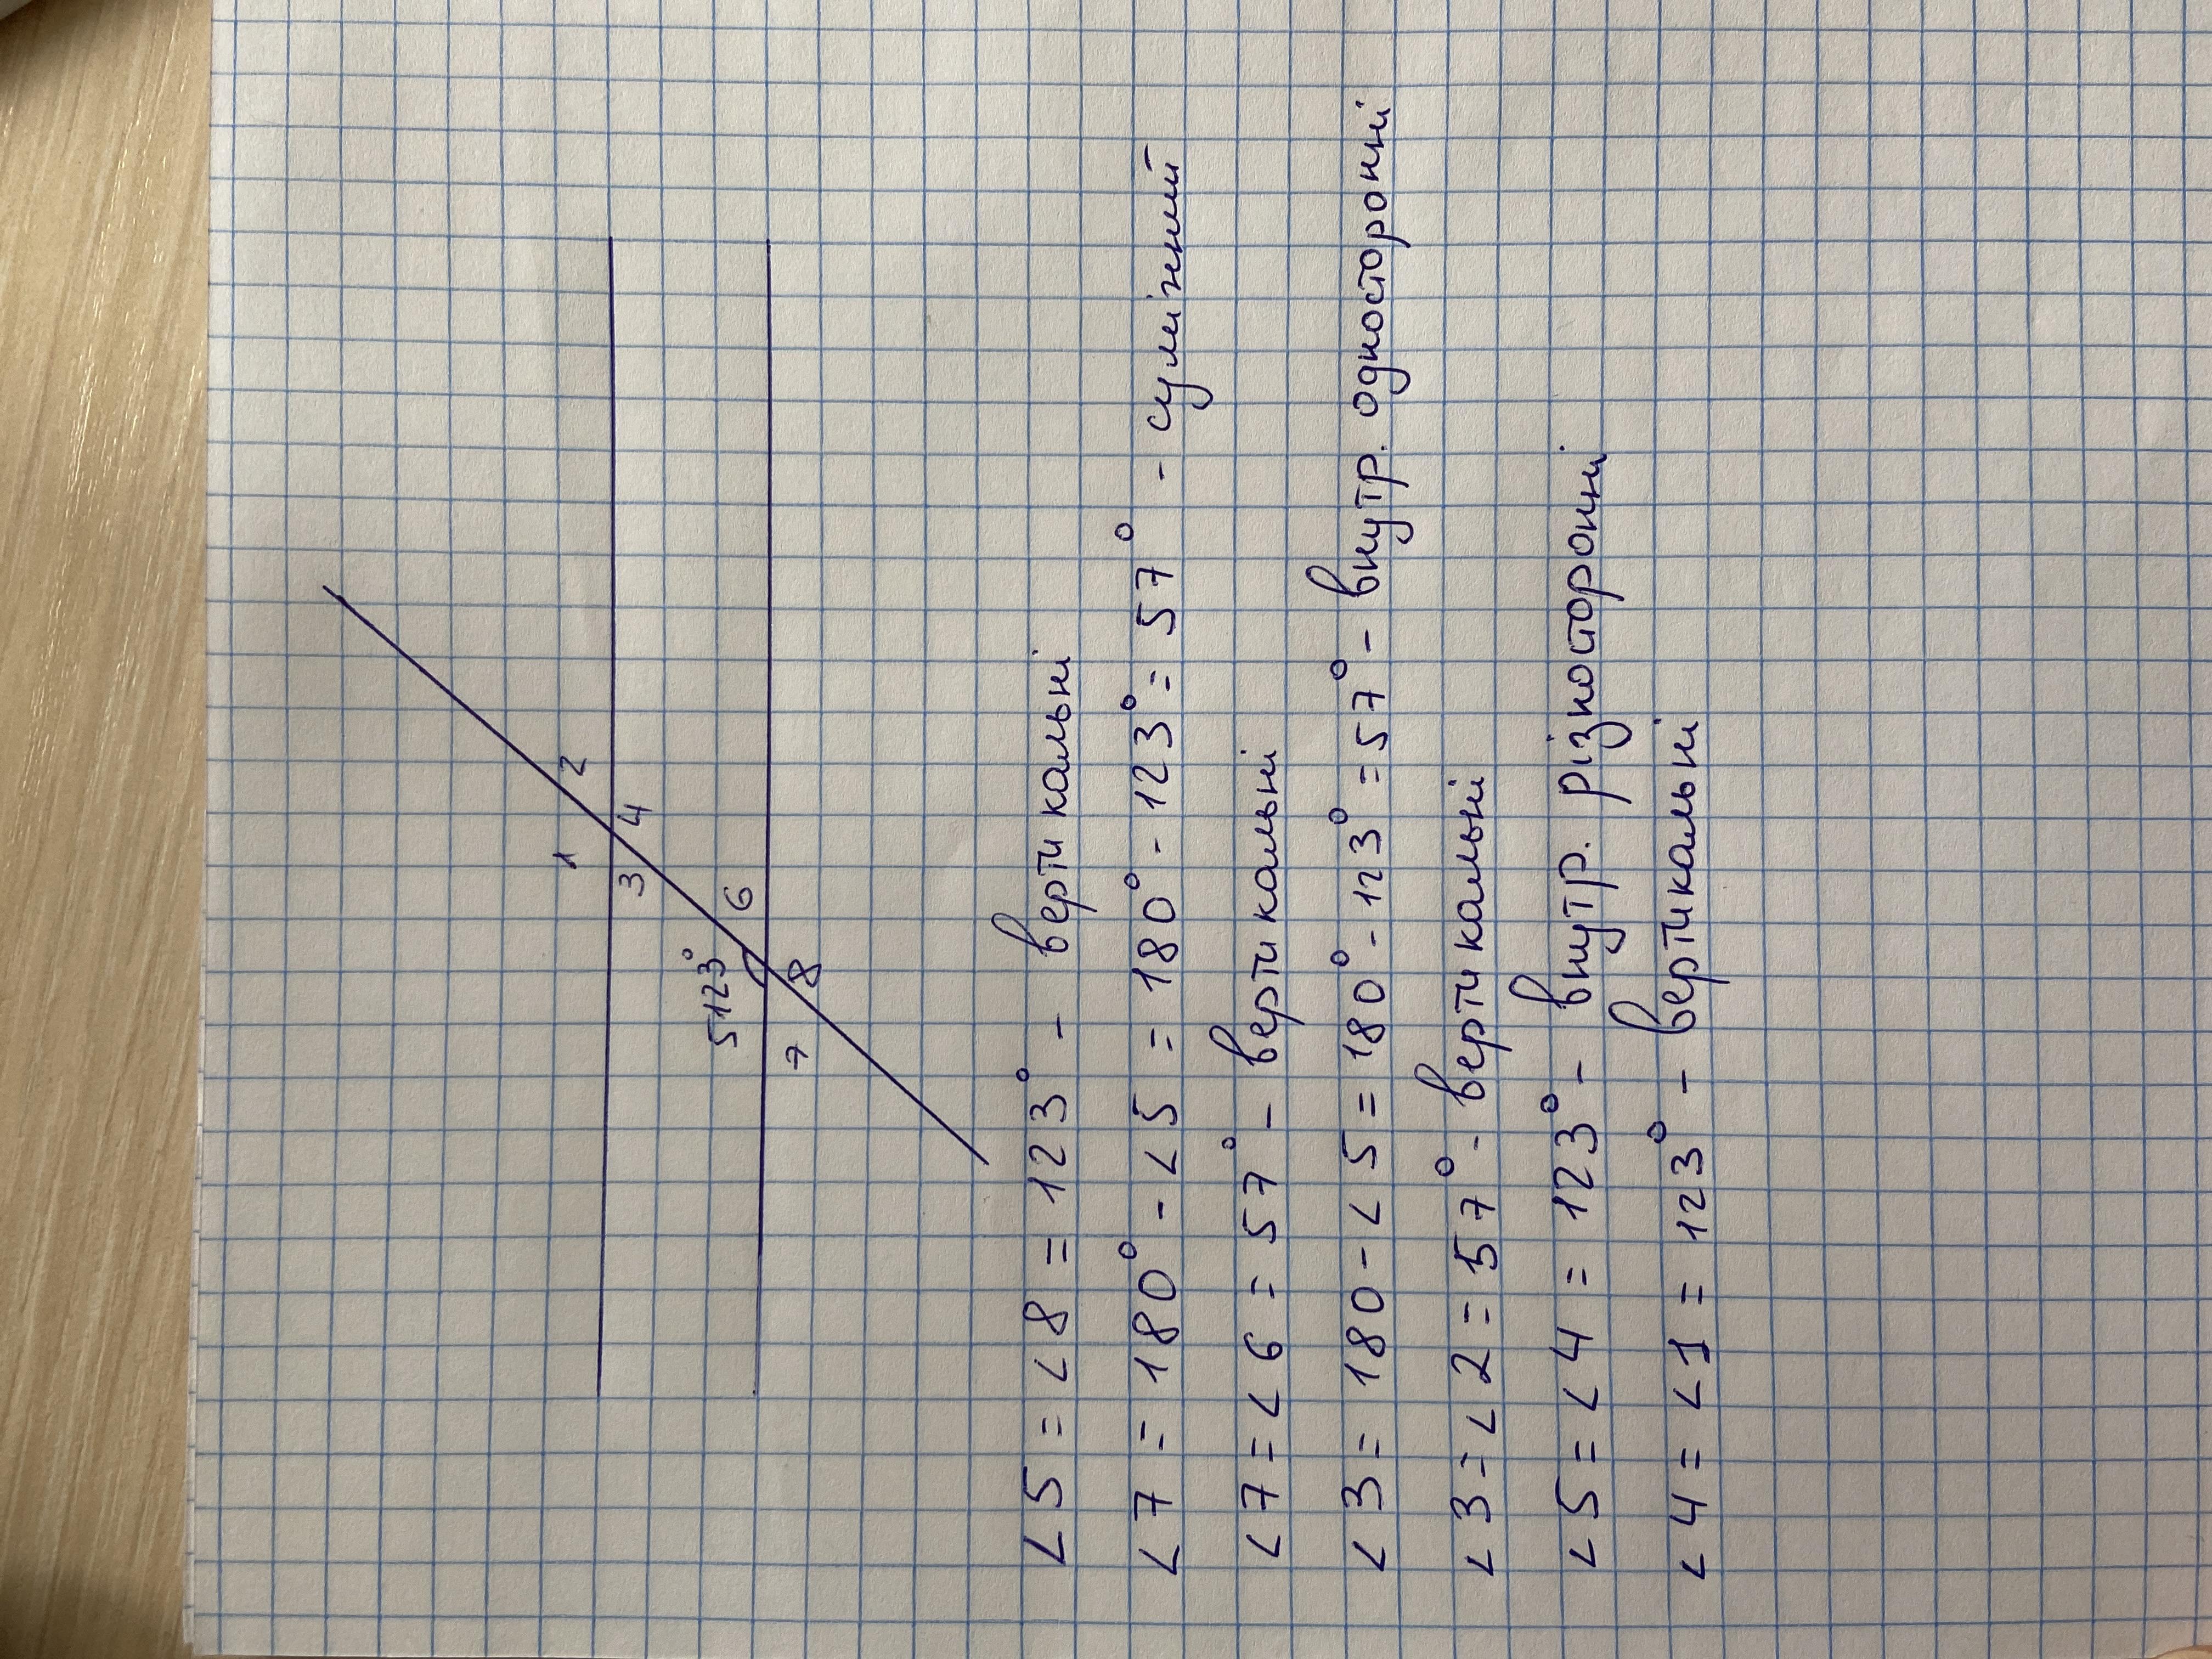 1 2
3 4
5 123° 6
7 8
∠5 = ∠8 = 123° - вертикальні
∠7 = 180° - ∠5 = 180° - 123° = 57° - суміжний
∠7 = ∠6 = 57° - вертикальні
∠3 = 180 - ∠5 = 180° - 123° = 57° - внутр. односторонні
∠3 = ∠2 = 57° - вертикальні
∠5 = ∠4 = 123° - внутр. різносторонні
∠4 = ∠1 = 123° - вертикальні